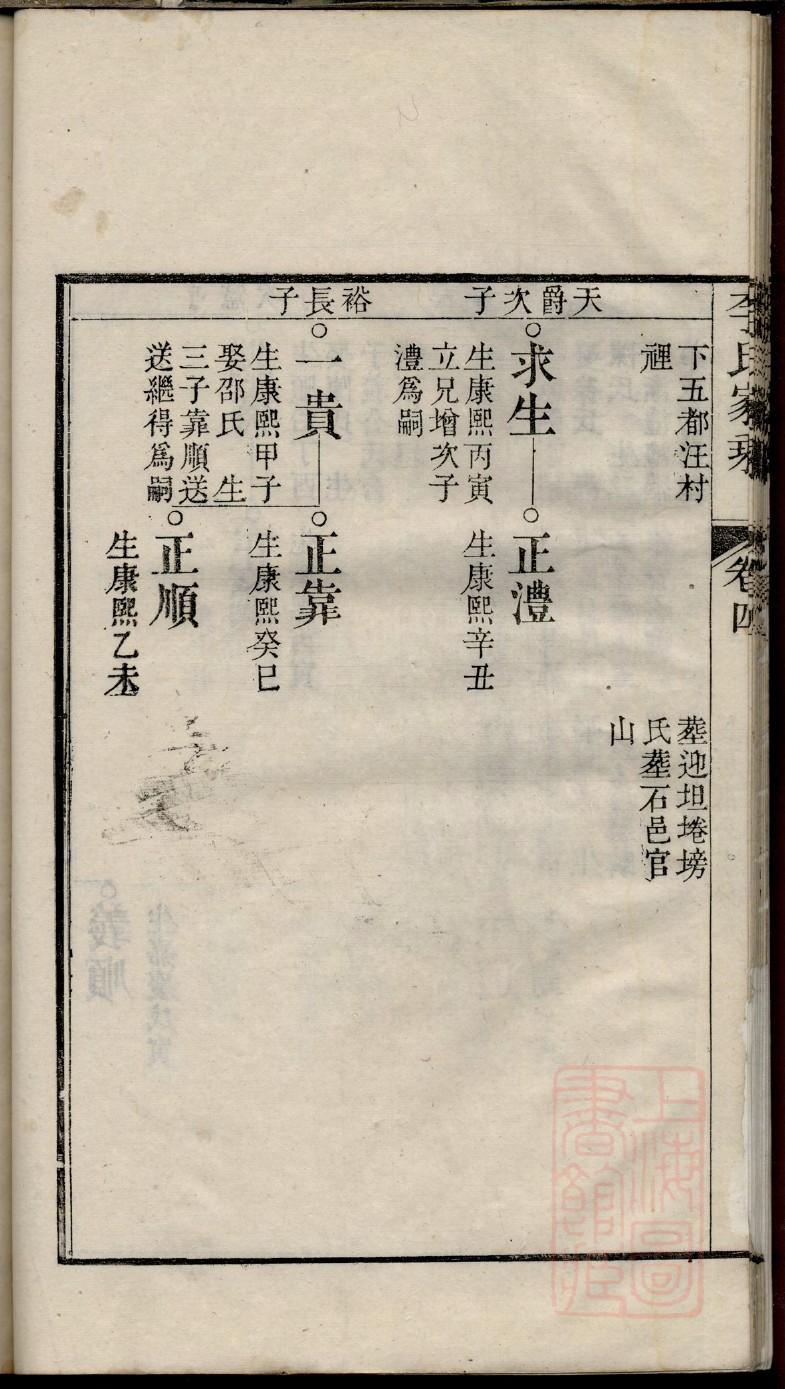 李氏家乘
卷四
下五都汪村
𮖐
塟迎坦埢塝
氏塟石邑官
山
天爵次子
求生
生康熙丙寅
立兄增次子
澧為嗣
正澧
生康熙辛丑
裕長子
一貴
生康熙甲子
娶邵氏 生
三子靠順送
送繼得為嗣
正靠
生康熙癸巳
正順
生康熙乙未
上海圖
書館藏